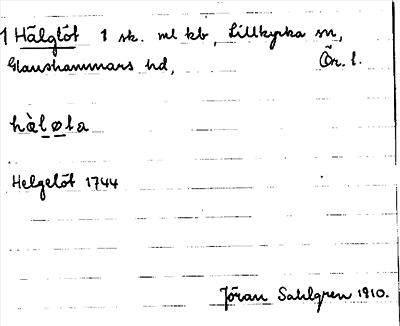 1 Hälglöt 1 sk. ml kb, Lillkyrka sn,
Glanshammars hd, Ör. l.
hæ̀lø̱la
Helgelöt 1744
Jöran Sahlgren 1910.